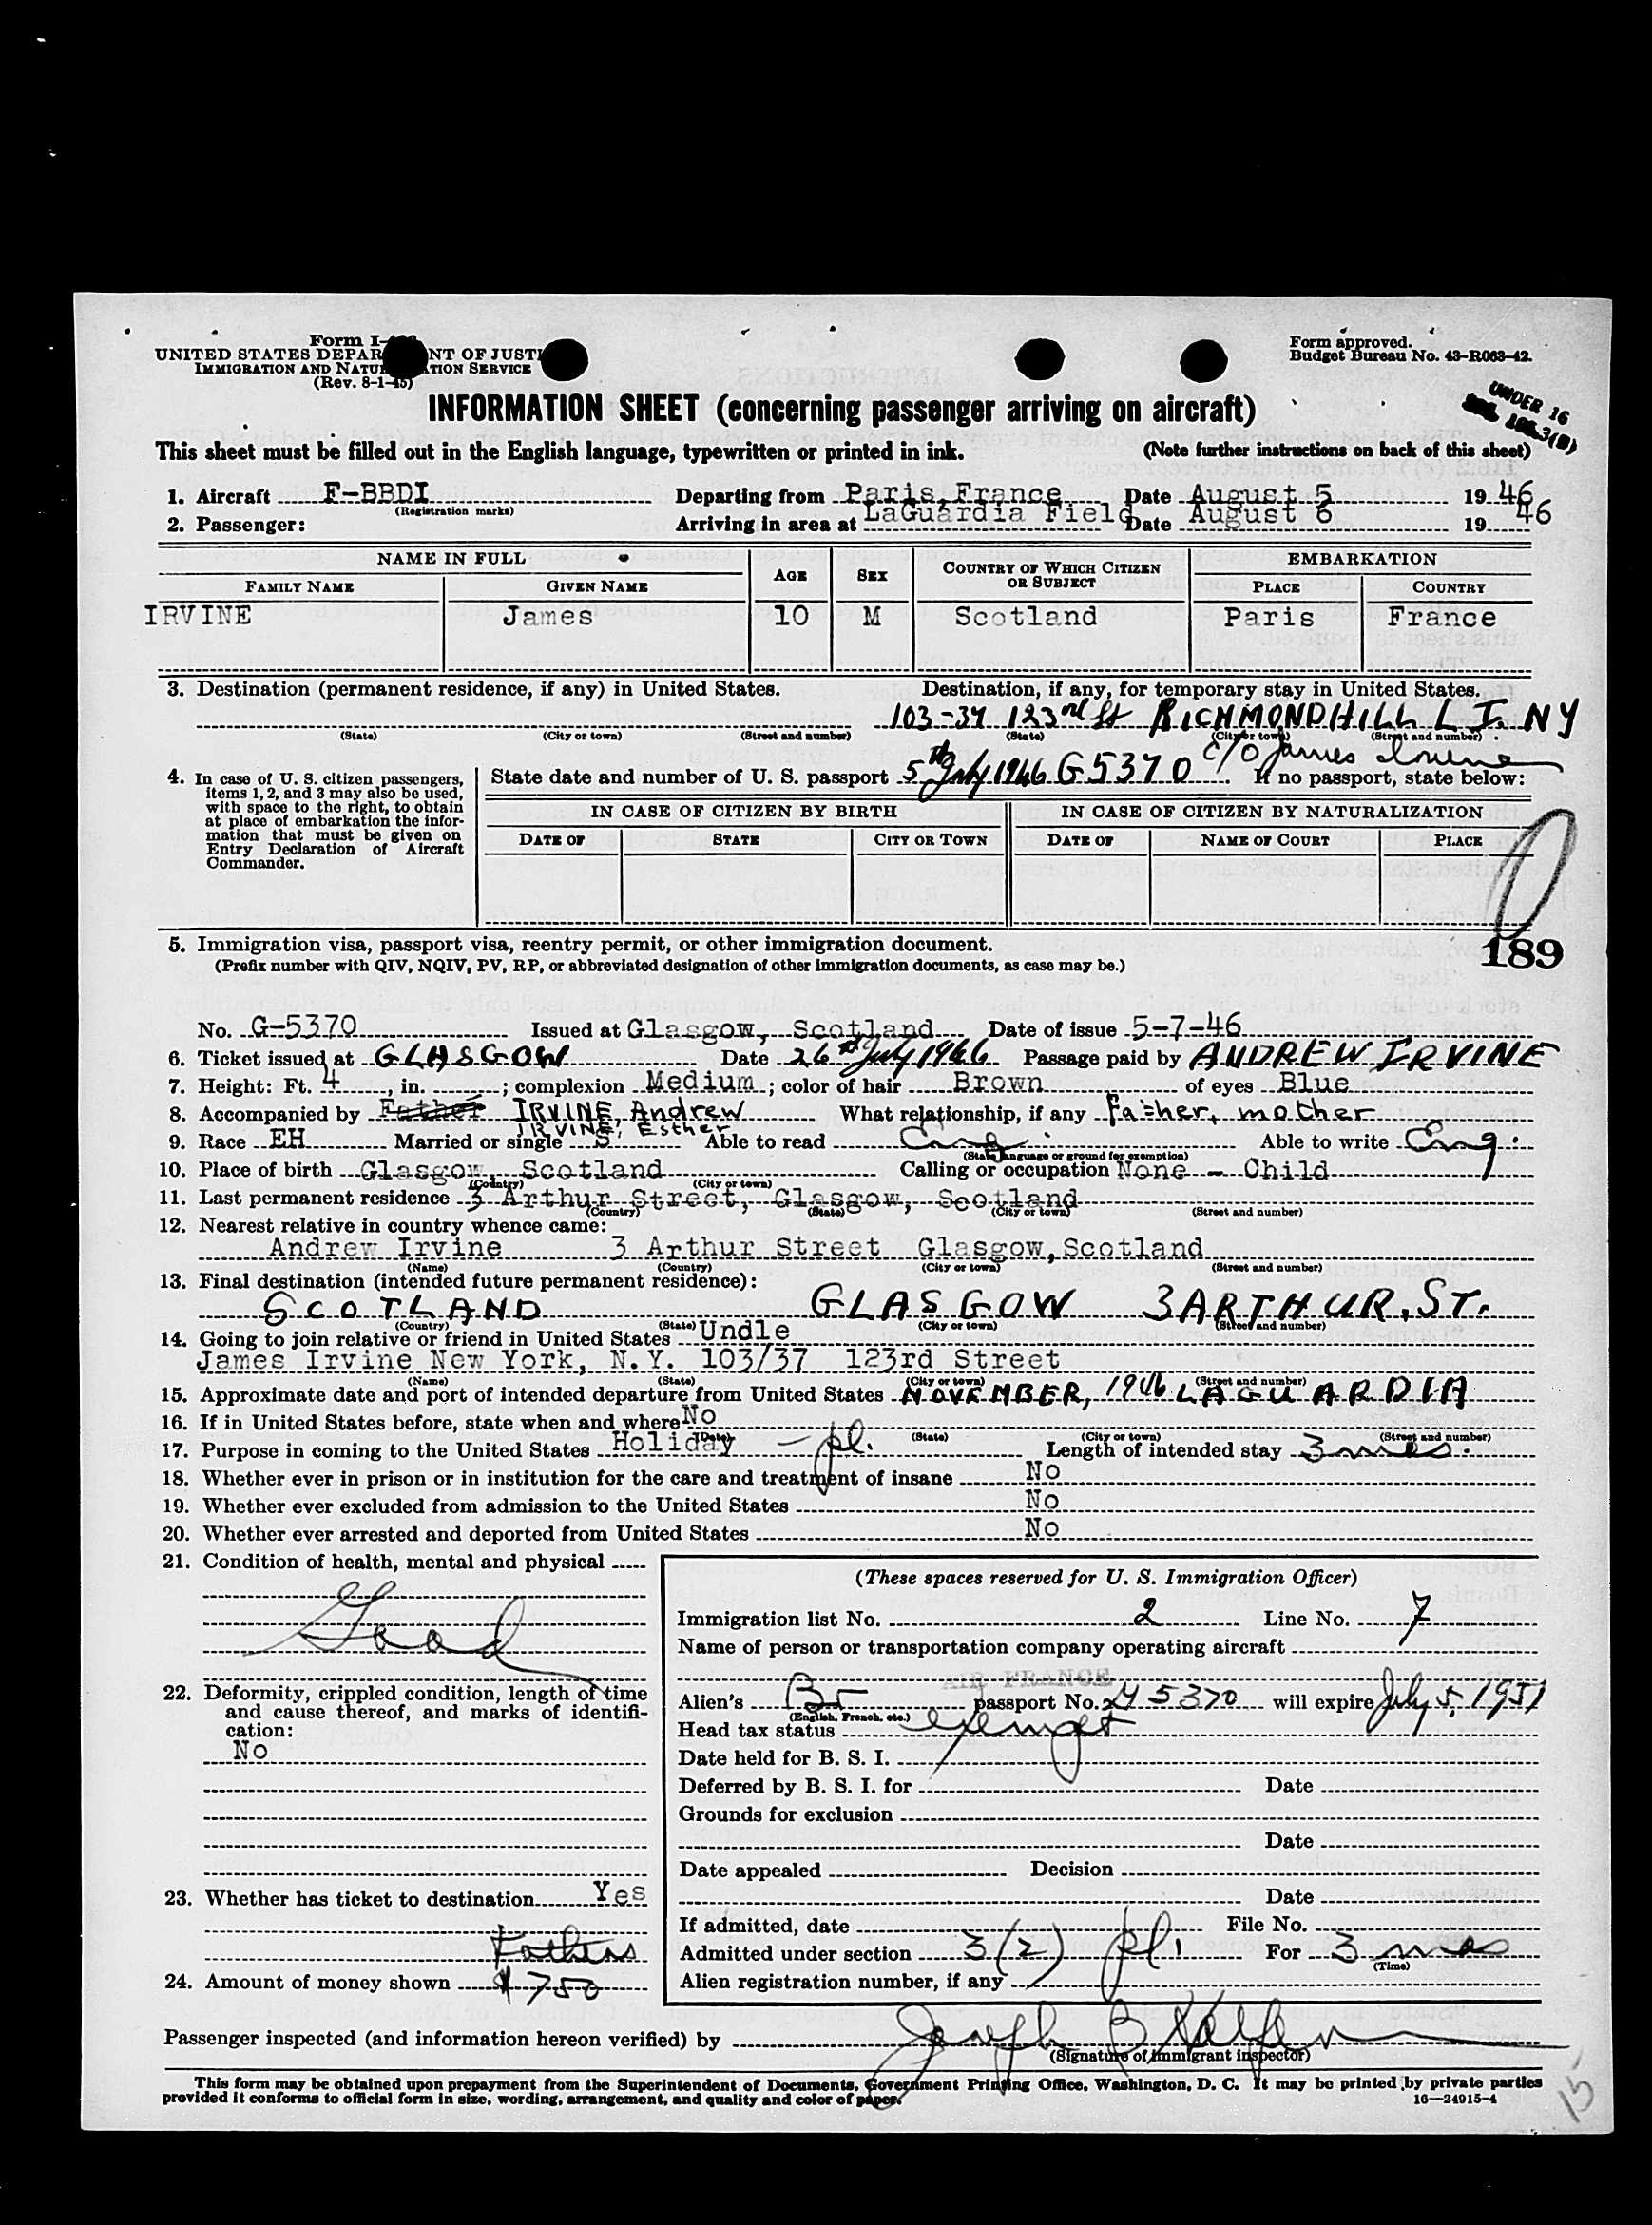 Form I-
UNITED STATES DEPAR NT OF JUSTI
IMMIGRATION AND NATU TION SERVICE
(Rev. 8-1-45)
Form approved.
Budget Bureau No. 43-R063-42.
INFORMATION SHEET (concerning passenger arriving on aircraft)
UNDER 16
3(2)
This sheet must be filled out in the English language, typewritten or printed in ink. (Note further instructions on back of this sheet)
1. Aircraft F-BBDI Departing from Paris, France Date August 5 19 46
(Registration marks)
2. Passenger: Arriving in area at LaGuardia Field Date August 6 19 46
NAME IN FULL AGE SEX COUNTRY OF WHICH CITIZEN OR SUBJECT EMBARKATION
FAMILY NAME GIVEN NAME PLACE COUNTRY
IRVINE James 10 M Scotland Paris France
3. Destination (permanent residence, if any) in United States. Destination, if any, for temporary stay in United States.
103-37 123rd St RICHMOND HILL L I. NY
(State) (City or town) (Street and number) (State) (City or town) (Street and number)
c/o James Irvine
4. In case of U. S. citizen passengers, items 1, 2, and 3 may also be used, with space to the right, to obtain at place of embarkation the information that must be given on Entry Declaration of Aircraft Commander.
State date and number of U. S. passport 5th July 1946 G 5370 If no passport, state below:
IN CASE OF CITIZEN BY BIRTH IN CASE OF CITIZEN BY NATURALIZATION
DATE OF STATE CITY OR TOWN DATE OF NAME OF COURT PLACE
5. Immigration visa, passport visa, reentry permit, or other immigration document.
(Prefix number with QIV, NQIV, PV, RP, or abbreviated designation of other immigration documents, as case may be.)
189
No. G-5370 Issued at Glasgow, Scotland Date of issue 5-7-46
6. Ticket issued at GLASGOW Date 26th July 1946 Passage paid by ANDREW IRVINE
7. Height: Ft. 4, in. ; complexion Medium; color of hair Brown of eyes Blue
8. Accompanied by Father IRVINE, Andrew What relationship, if any father, mother
IRVINE, Esther
9. Race EH Married or single S Able to read Eng. Able to write Eng.
(State language or ground for exemption)
10. Place of birth Glasgow, Scotland Calling or occupation None - Child
(Country) (City or town)
11. Last permanent residence 3 Arthur Street, Glasgow, Scotland
(Country) (State) (City or town) (Street and number)
12. Nearest relative in country whence came:
Andrew Irvine 3 Arthur Street Glasgow, Scotland
(Name) (Country) (City or town) (Street and number)
13. Final destination (intended future permanent residence):
SCOTLAND GLASGOW 3 ARTHUR. ST.
(Country) (State) (City or town) (Street and number)
14. Going to join relative or friend in United States Undle
James Irvine New York, N.Y. 103/37 123rd Street
(Name) (State) (City or town) (Street and number)
15. Approximate date and port of intended departure from United States NOVEMBER, 1946 LAGUARDIA
16. If in United States before, state when and where No
(Date) (State) (City or town) (Street and number)
17. Purpose in coming to the United States Holiday - pl. Length of intended stay 3 mos.
18. Whether ever in prison or in institution for the care and treatment of insane No
19. Whether ever excluded from admission to the United States No
20. Whether ever arrested and deported from United States No
21. Condition of health, mental and physical
Good
22. Deformity, crippled condition, length of time and cause thereof, and marks of identification:
No
23. Whether has ticket to destination Yes
Fathers
24. Amount of money shown $750
(These spaces reserved for U. S. Immigration Officer)
Immigration list No. 2 Line No. 7
Name of person or transportation company operating aircraft
AIR FRANCE
Alien's Br passport No. G 5370 will expire July 5, 1951
(English, French, etc.)
Head tax status exempt
Date held for B. S. I.
Deferred by B. S. I. for Date
Grounds for exclusion
Date
Date appealed Decision
Date
If admitted, date File No.
Admitted under section 3(2) pl. For 3 mos
(Time)
Alien registration number, if any
Passenger inspected (and information hereon verified) by Joseph B
(Signature of immigrant inspector)
This form may be obtained upon prepayment from the Superintendent of Documents, Government Printing Office, Washington, D. C. It may be printed by private parties
provided it conforms to official form in size, wording, arrangement, and quality and color of paper.
16—24915-4
15-